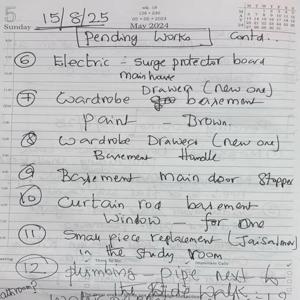 5
15/8/25
Sunday
May 2024
Pending Works Contd..
6 Electric - surge protector board
main house
7 Wardrobe Drawers (new one)
basement
paint - Brown.
8 Wardrobe Drawers (new one)
Basement Handle
9 Basement main door Stopper
10 Curtain rod basement
Window - for one
11 Small piece replacement (Jaisalmer)
in the study room
12 plumbing - pipe next to
the kids